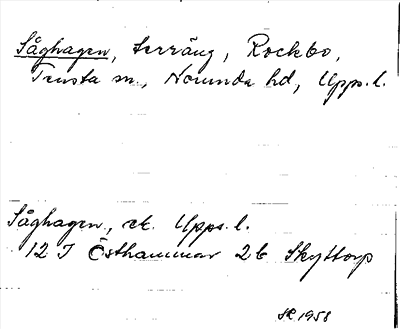 Såghagen, terräng, Rockbo,
Tensta sn, Norunda hd, Upps. l.
Såghagen, ek. Upps. l.
12 I Östhammar 2b Skyttorp
1958